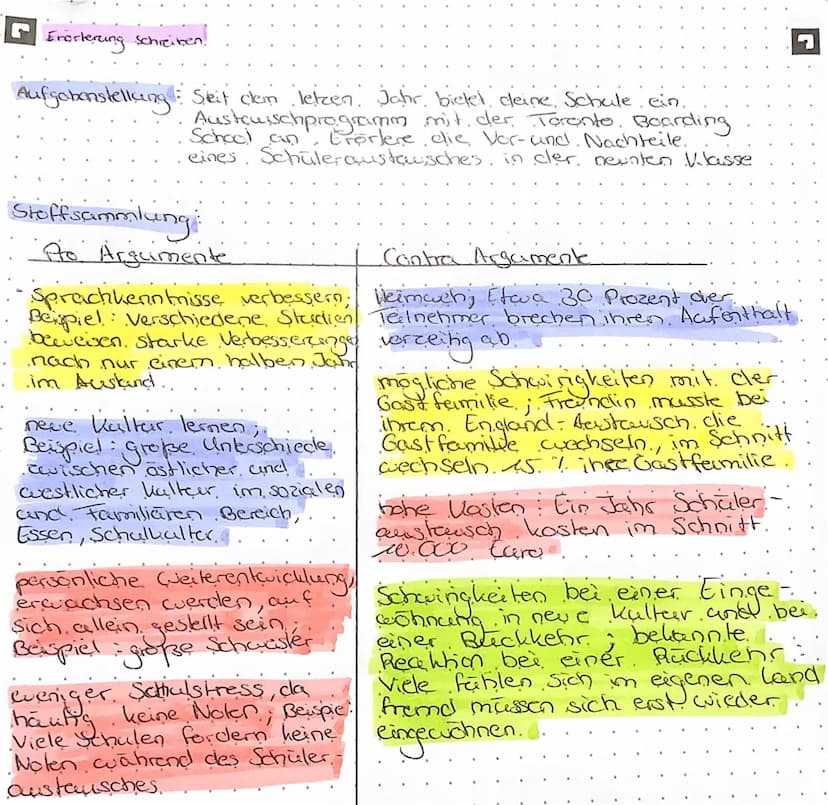 Erörterung schreiben
Aufgabenstellung: Seit dem letzen Jahr bietet deine Schule ein
Austauschprogramm mit der Toronto Boarding
School an. Erörtere die Vor- und Nachteile
eines Schüleraustausches in der neunten Klasse
Stoffsammlung:
Pro Argumente
Sprachkenntnisse verbessern;
Beispiel: Verschiedene Studien
beweisen starke Verbesserunge
nach nur einem halben Jahr
im Ausland
neue Kultur lernen;
Beispiel: große Unterschiede
zwischen östlicher und
westlicher Kultur im sozialen
und Familiären Bereich,
Essen, Schulkultur
persönliche Weiterentwicklung,
erwachsen werden, auf
sich allein gestellt sein,
Beispiel: große Schwester
weniger Schulstress, da
häufig keine Noten; Beispiel:
Viele Schulen fordern keine
Noten während des Schüler
austausches
Contra Argumente
Heimweh; Etwa 30 Prozent der
Teilnehmer brechen ihren Aufenthalt
vorzeitig ab
mögliche Schwirigkeiten mit der
Gastfamilie; Freundin musste bei
ihrem England-Austausch die
Gastfamilie wechseln, im Schnitt
wechseln 15 % ihre Gastfamilie
hohe Kosten: Ein Jahr Schüler-
austausch kosten im Schnitt
10.000 Euro
Schwirigkeiten bei einer Einge-
wöhnung in neue Kultur und bei
einer Rückkehr; bekannte
Reaktion bei einer Rückkehr -
Viele fühlen sich im eigenen Land
fremd müssen sich erst wieder
eingewöhnen.